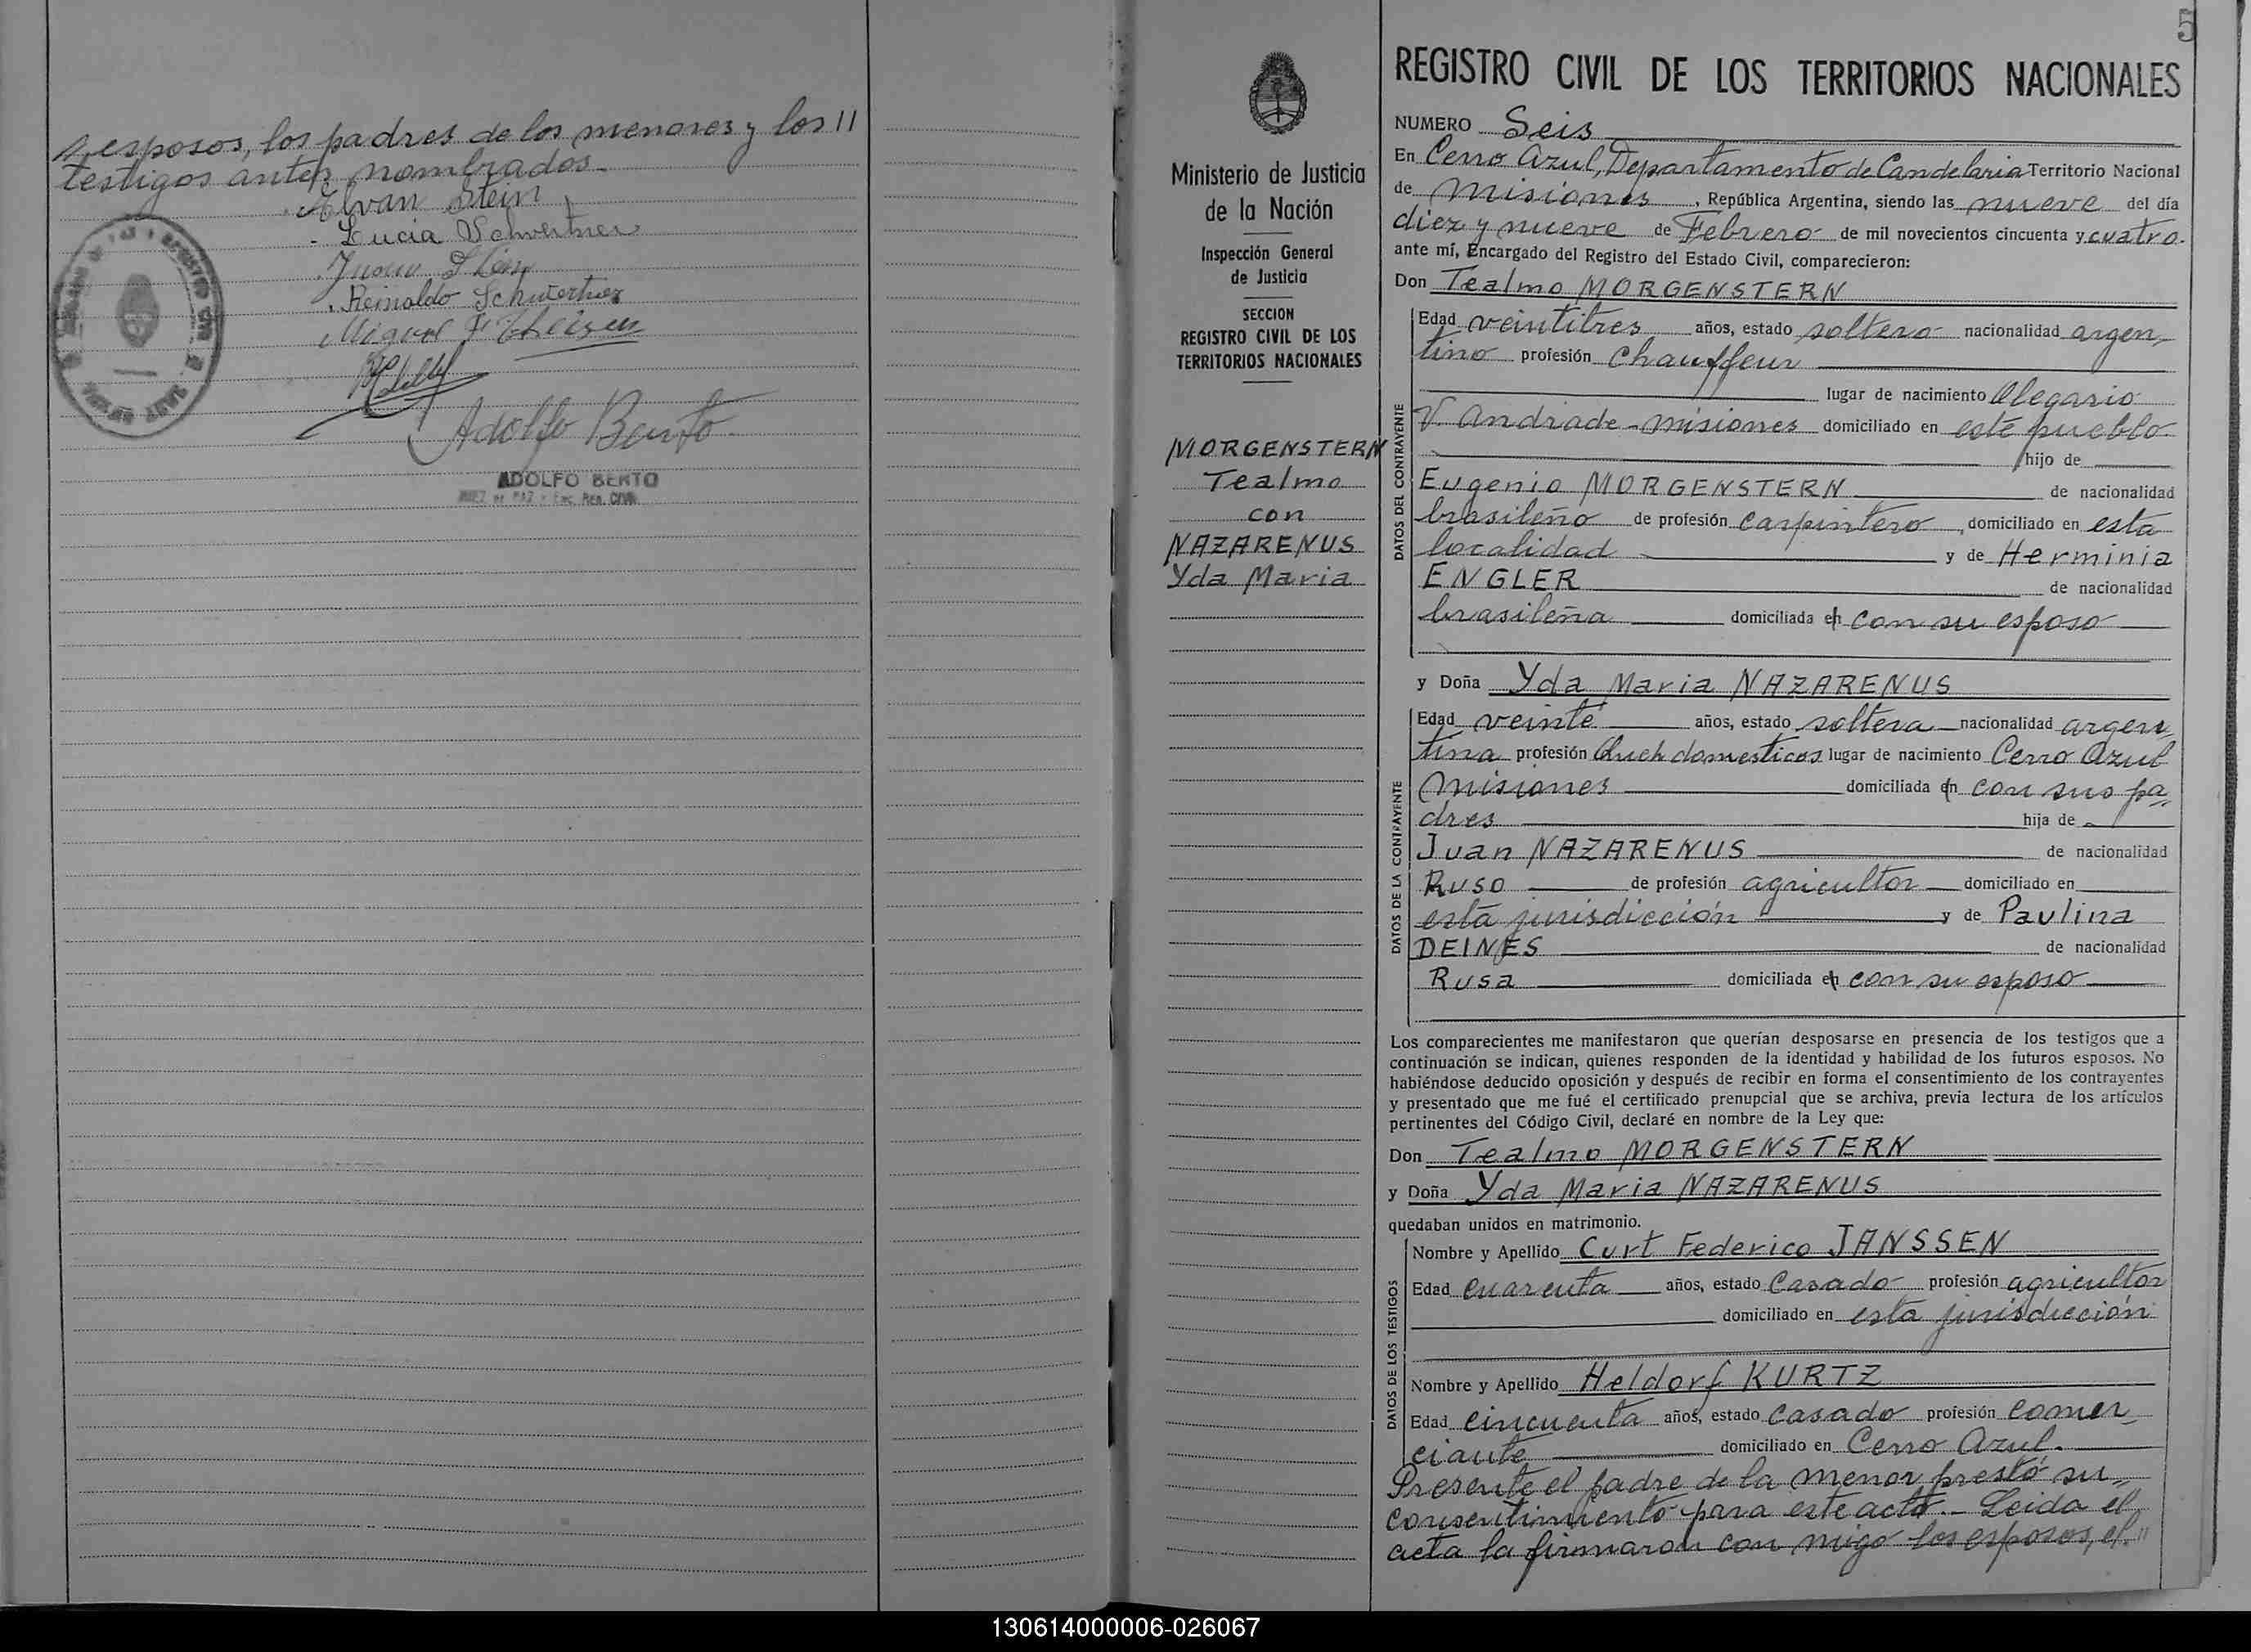 s, esposos, los padres de los menores y los //
testigos antes nombrados.
Alvan Stein
Lucia Schwertner
Reinaldo Schwertner
Adolfo Berto
ADOLFO BERTO
JUEZ DE PAZ - Enc. Reg. Civil
5
Ministerio de Justicia
de la Nación
Inspección General
de Justicia
SECCION
REGISTRO CIVIL DE LOS
TERRITORIOS NACIONALES
MORGENSTERN
Tealmo
con
NAZARENUS
Yda Maria
REGISTRO CIVIL DE LOS TERRITORIOS NACIONALES
NUMERO Seis
En Cerro Azul, Departamento de Candelaria Territorio Nacional
de Misiones, República Argentina, siendo las nueve del día
diez y nueve de Febrero de mil novecientos cincuenta y cuatro.
ante mí, Encargado del Registro del Estado Civil, comparecieron:
Don Tealmo MORGENSTERN
DATOS DEL CONTRAYENTE
Edad veintitres años, estado soltero nacionalidad argen-
tino profesión Chauffeur
lugar de nacimiento Olegario
V. Andrade - Misiones domiciliado en este pueblo.
hijo de
Eugenio MORGENSTERN de nacionalidad
brasileño de profesión carpintero, domiciliado en esta
localidad y de Herminia
ENGLER de nacionalidad
brasileña domiciliada en con su esposo
y Doña Yda Maria NAZARENUS
DATOS DE LA CONTRAYENTE
Edad veinte años, estado soltera nacionalidad argen-
tina profesión Queh domesticos lugar de nacimiento Cerro Azul
Misiones domiciliada en con sus pa-
dres hija de
Juan NAZARENUS de nacionalidad
Ruso de profesión agricultor domiciliado en
esta jurisdicción y de Paulina
DEINES de nacionalidad
Rusa domiciliada en con su esposo
Los comparecientes me manifestaron que querían desposarse en presencia de los testigos que a
continuación se indican, quienes responden de la identidad y habilidad de los futuros esposos. No
habiéndose deducido oposición y después de recibir en forma el consentimiento de los contrayentes
y presentado que me fué el certificado prenupcial que se archiva, previa lectura de los artículos
pertinentes del Código Civil, declaré en nombre de la Ley que:
Don Tealmo MORGENSTERN
y Doña Yda Maria NAZARENUS
quedaban unidos en matrimonio.
DATOS DE LOS TESTIGOS
Nombre y Apellido Curt Federico JANSSEN
Edad cuarenta años, estado Casado profesión agricultor
domiciliado en esta jurisdicción
Nombre y Apellido Heldorf KURTZ
Edad cincuenta años, estado casado profesión comer-
ciante domiciliado en Cerro Azul.
Presente el padre de la menor prestó su
consentimiento para este acto.- Leida el
acta la firmaron con migo los esposos, el //
130614000006-026067